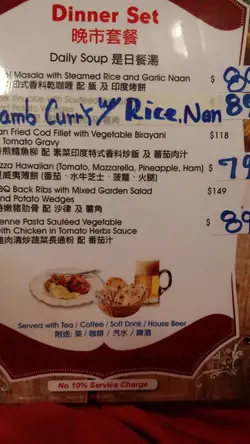 Dinner Set
晚市套餐
Daily Soup 是日餐湯
Masala with Steamed Rice and Garlic Naan $ 8
印式香料乾咖喱 配 飯 及 印度烤餅
amb Curry w/ Rice, Nan 8
an Fried Cod Fillet with Vegetable Birayani $118
Tomato Gravy
香煎鱈魚柳 配 素菜印度特式香料炒飯 及 蕃茄肉汁
zza Hawaiian (Tomato, Mozzarella, Pineapple, Ham) $ 79
夏威夷薄餅 (蕃茄、水牛芝士、菠蘿、火腿)
BQ Back Ribs with Mixed Garden Salad $149
nd Potato Wedges
嫩豬肋骨 配 沙律 及 薯角
enne Pasta Sautéed Vegetable $ 8
with Chicken in Tomato Herbs Sauce
雞肉清炒蔬菜長通粉 配 蕃茄汁
Served with Tea / Coffee / Soft Drink / House Beer
附送: 茶 / 咖啡 / 汽水 / 啤酒
No 10% Service Charge